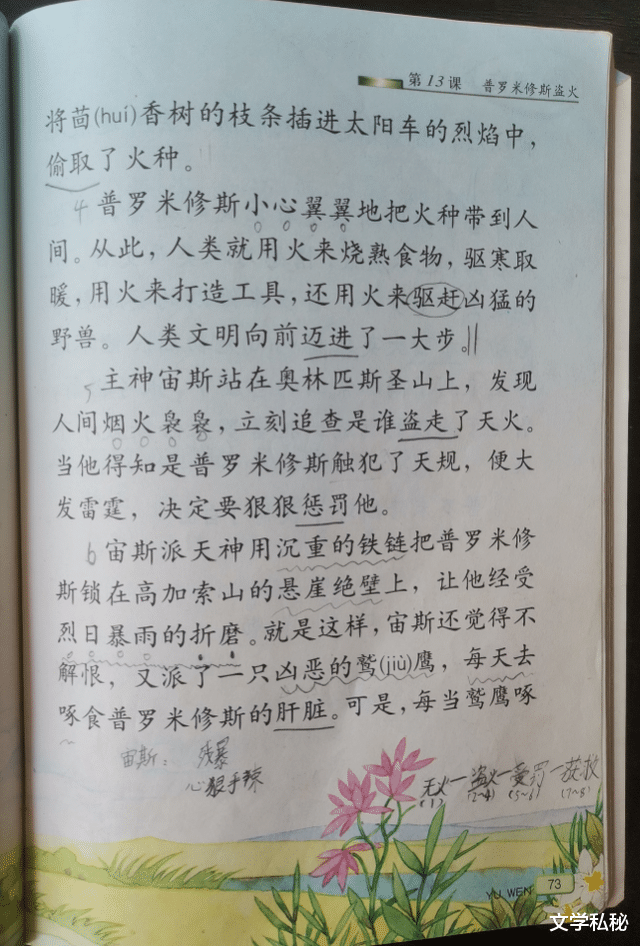 第13课 普罗米修斯盗火
将茴(huí)香树的枝条插进太阳车的烈焰中，
偷取了火种。
4 普罗米修斯小心翼翼地把火种带到人
间。从此，人类就用火来烧熟食物，驱寒取
暖，用火来打造工具，还用火来驱赶凶猛的
野兽。人类文明向前迈进了一大步。
5 主神宙斯站在奥林匹斯圣山上，发现
人间烟火袅袅，立刻追查是谁盗走了天火。
当他得知是普罗米修斯触犯了天规，便大
发雷霆，决定要狠狠惩罚他。
6 宙斯派天神用沉重的铁链把普罗米修
斯锁在高加索山的悬崖绝壁上，让他经受
烈日暴雨的折磨。就是这样，宙斯还觉得不
解恨，又派了一只凶恶的鹫(jiù)鹰，每天去
啄食普罗米修斯的肝脏。可是，每当鹫鹰啄
宙斯：残暴
心狠手辣
无火—盗火—受罚—获救
(1) (2~4) (5~6) (7~8)
YU WEN 73
文学私秘